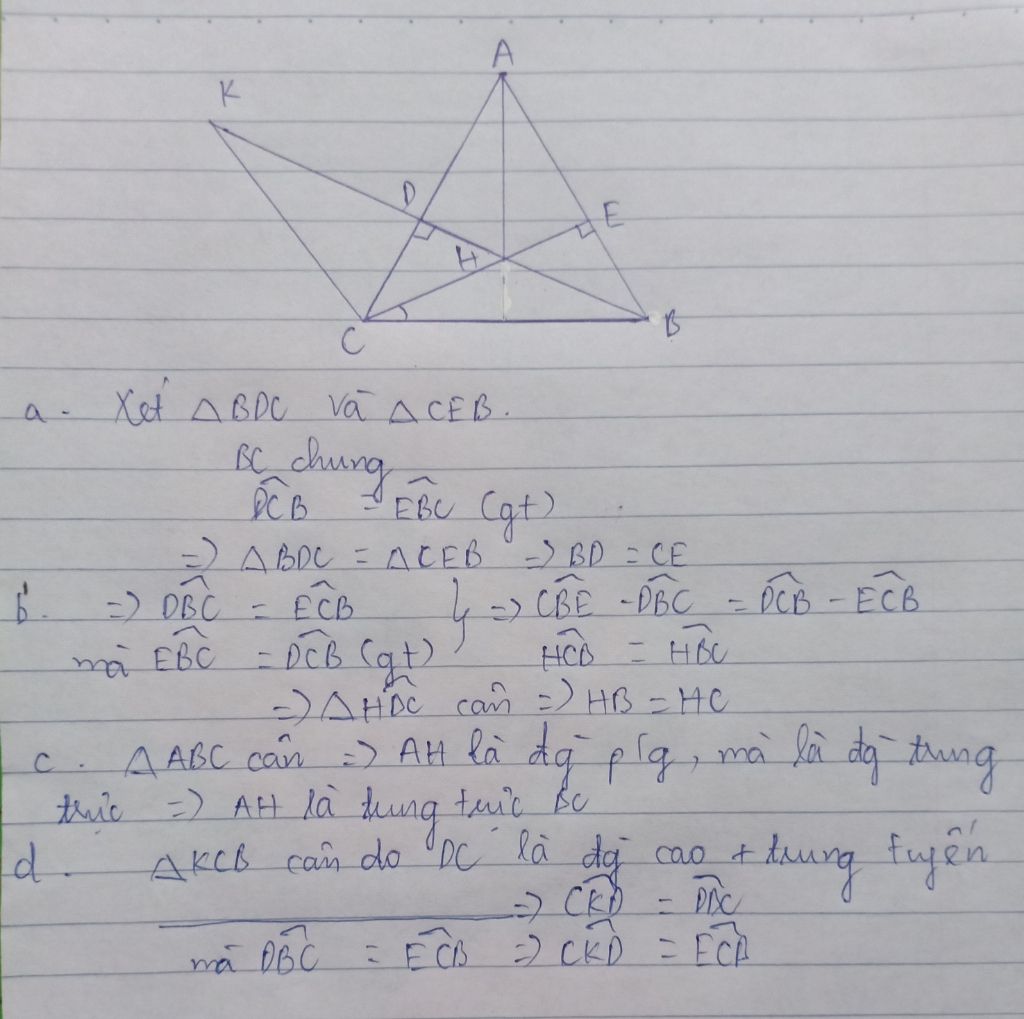 A
K
D
E
H
C
B
a. Xét △BDC và △CEB.
BC chung
DĈB = EB̂C (gt)
=> △BDC = △CEB => BD = CE
b. => DB̂C = EĈB } => CB̂E - DB̂C = DĈB - EĈB
mà EB̂C = DĈB (gt) HĈB = HB̂C
=> △HDC cân => HB = HC
c. △ABC cân => AH là đg p/g, mà là đg trung
trực => AH là trung trực BC
d. △KCB cân do DC là đg cao + trung tuyến
=> CK̂D = DB̂C
mà DB̂C = EĈB => CK̂D = EĈB